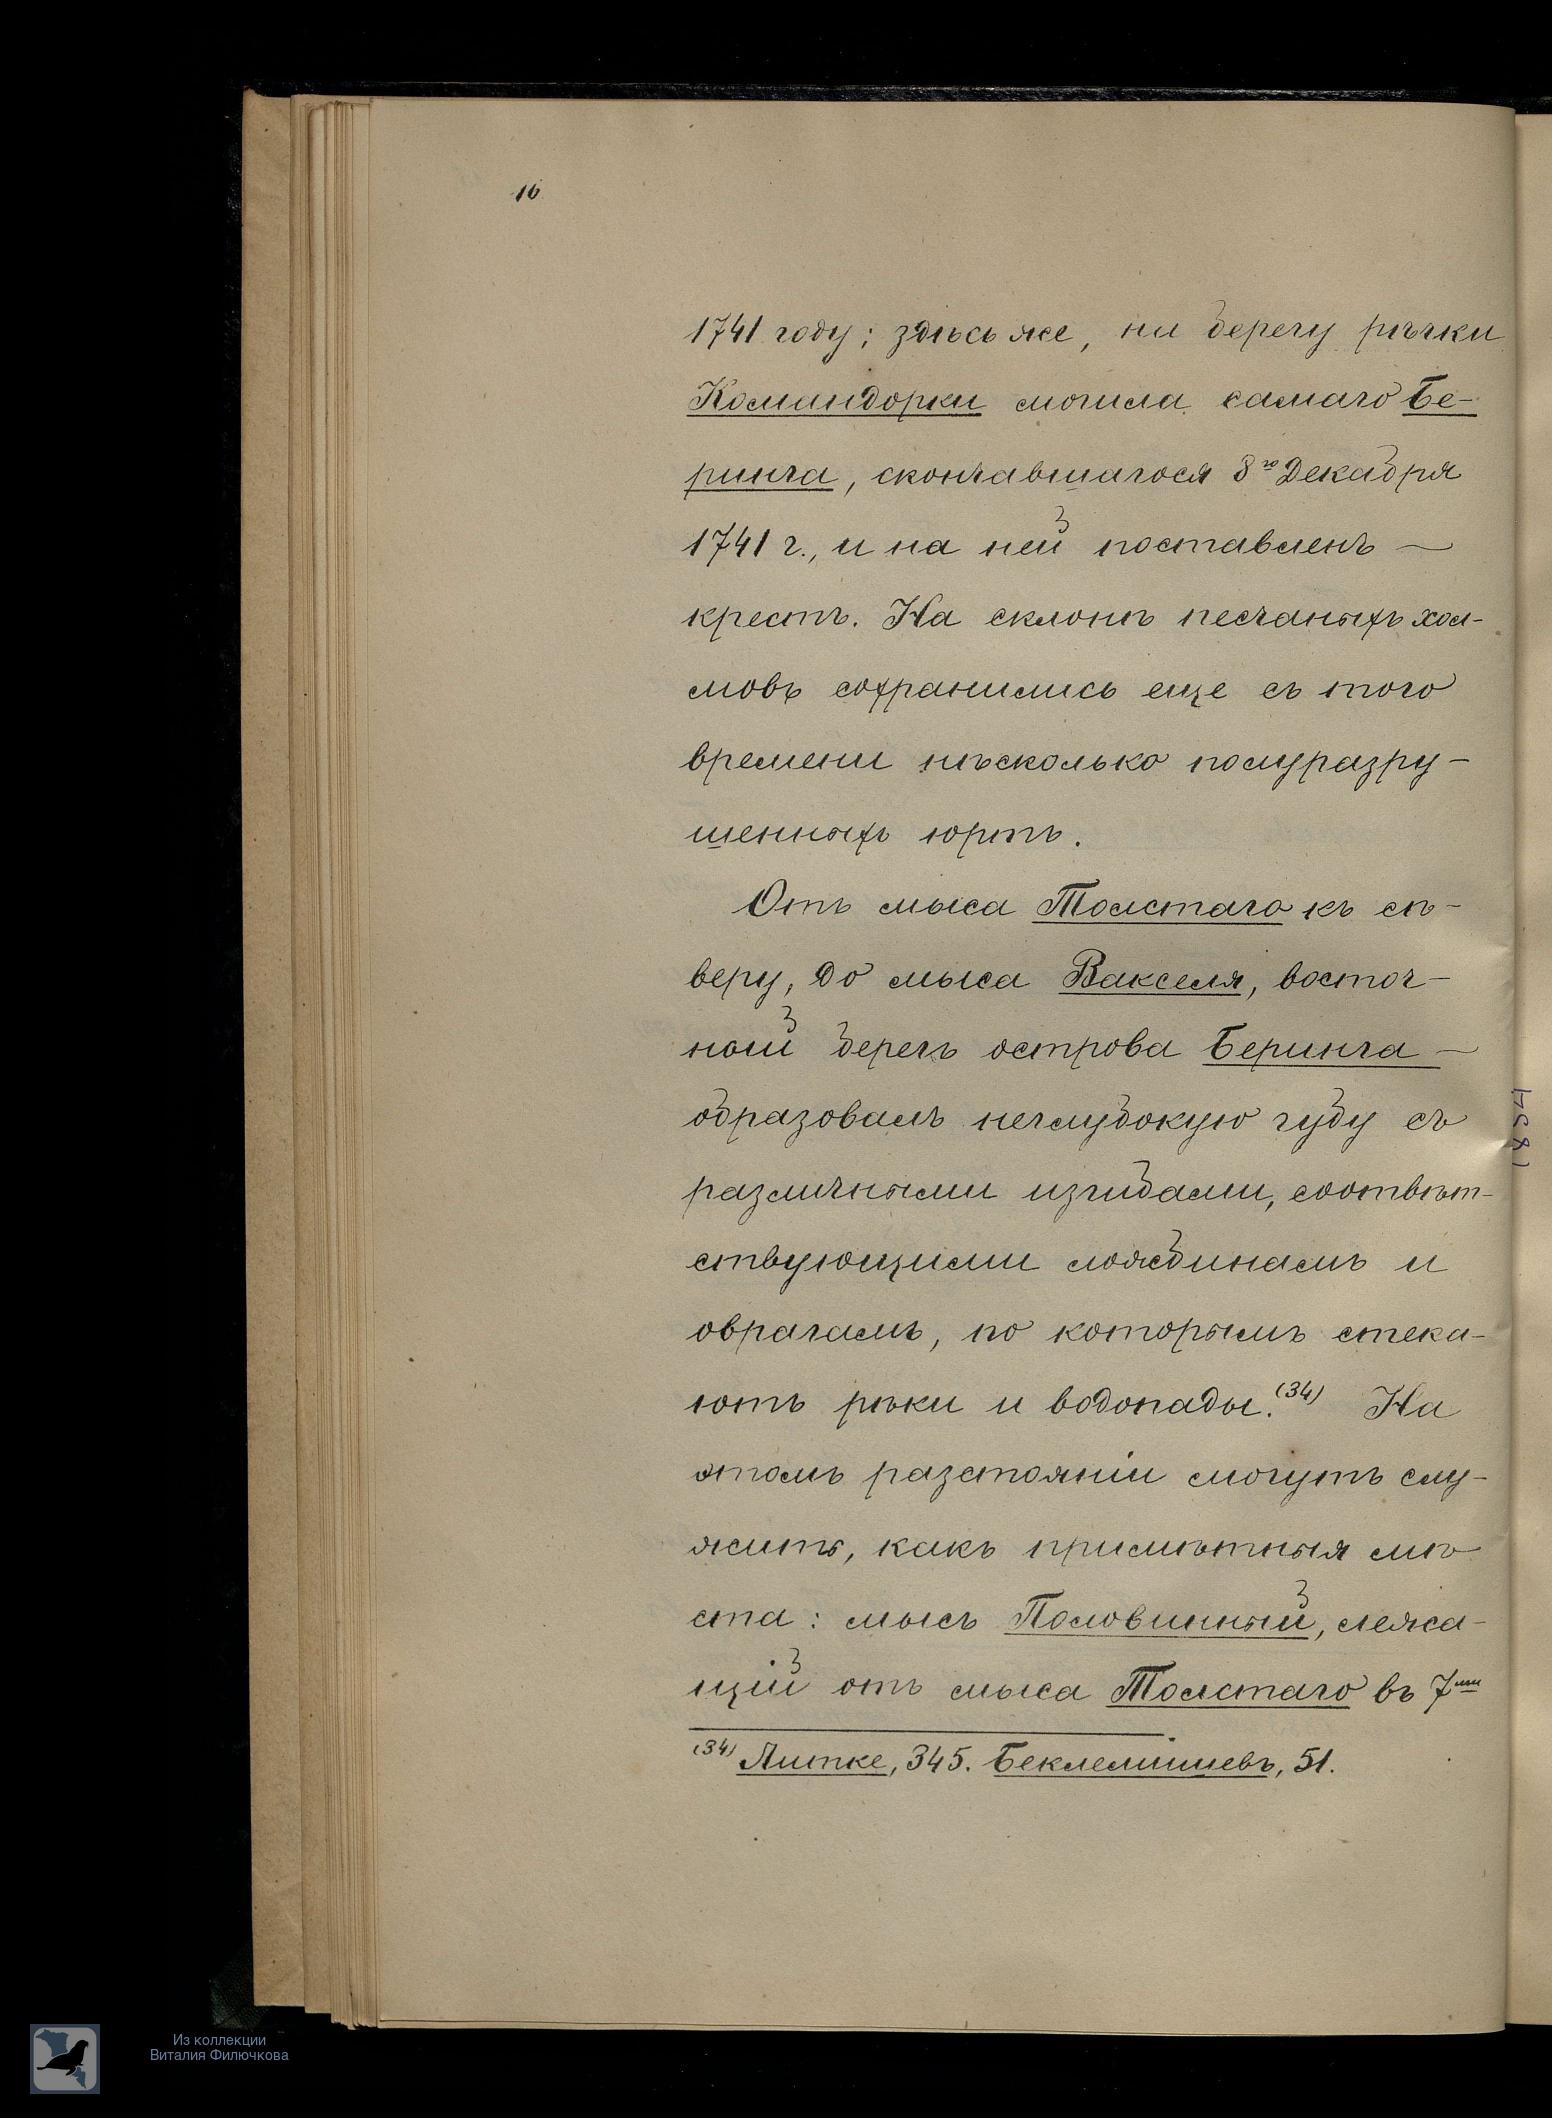 16
1741 году; здѣсь же, на берегу рѣчки
Командорки могила самаго Бе-
ринга, скончавшагося 8го Декабря
1741 г., и на ней поставленъ —
крестъ. На склонѣ песчаныхъ хол-
мовъ сохранились еще съ того
времени нѣсколько полуразру-
шенныхъ юртъ.
Отъ мыса Толстаго къ сѣ-
веру, до мыса Вакселя, восточ-
ный берегъ острова Беринга —
образовалъ неглубокую губу съ
различными изгибами, соотвѣт-
ствующими ложбинамъ и
оврагамъ, по которымъ стека-
ютъ рѣки и водопады.(34) На
этомъ разстояніи могутъ слу-
жить, какъ примѣтныя мѣ-
ста: мысъ Половинный, лежа-
щій отъ мыса Толстаго въ 7ми
(34) Литке, 345. Беклемишевъ, 51.
1854
Из коллекции
Виталия Филючкова